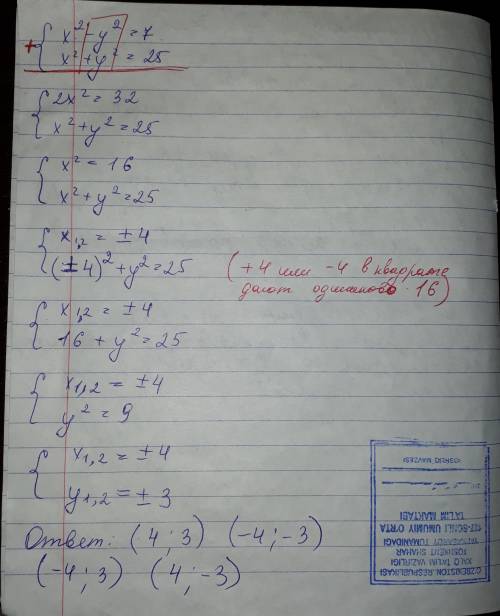 + { x² - y² = 7
x² + y² = 25
{ 2x² = 32
x² + y² = 25
{ x² = 16
x² + y² = 25
{ x₁,₂ = ± 4
(± 4)² + y² = 25
(+4 или -4 в квадрате
дают одинаково 16)
{ x₁,₂ = ± 4
16 + y² = 25
{ x₁,₂ = ± 4
y² = 9
{ x₁,₂ = ± 4
y₁,₂ = ± 3
Ответ: (4; 3) (-4; -3)
(-4; 3) (4; -3)
O'ZBEKISTON RESPUBLIKASI
XALQ TA'LIM VAZIRLIGI
TOSHKENT SHAHAR
TUMANIDAGI
UMUMIY O'RTA
TA'LIM MAKTABI